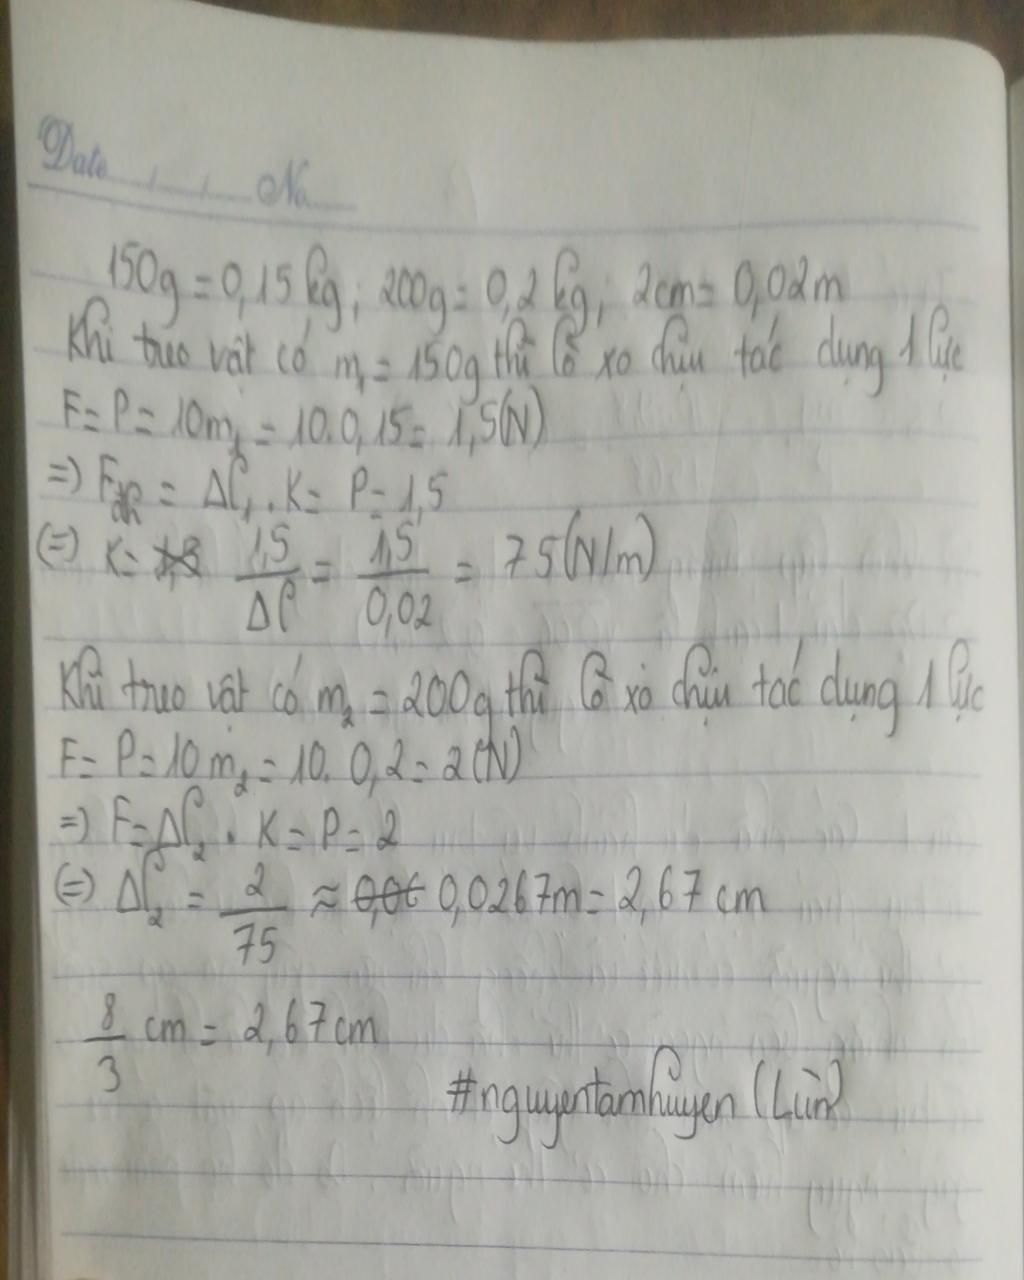 Date / / No
150g = 0,15 kg; 200g = 0,2 kg; 2cm = 0,02m
Khi treo vật có m₁ = 150g thì lò xo chịu tác dụng 1 lực
F = P = 10m₁ = 10.0,15 = 1,5(N)
=> Fđh = Δl₁ . K = P = 1,5
(=) K = 1,5/Δl = 1,5/0,02 = 75(N/m)
Khi treo vật có m₂ = 200g thì lò xo chịu tác dụng 1 lực
F = P = 10m₂ = 10. 0,2 = 2(N)
=> F = Δl₂ . K = P = 2
(=) Δl₂ = 2/75 ≈ 0,0267m = 2,67 cm
8/3 cm = 2,67cm
#nguyentamhuyen (Lùn)